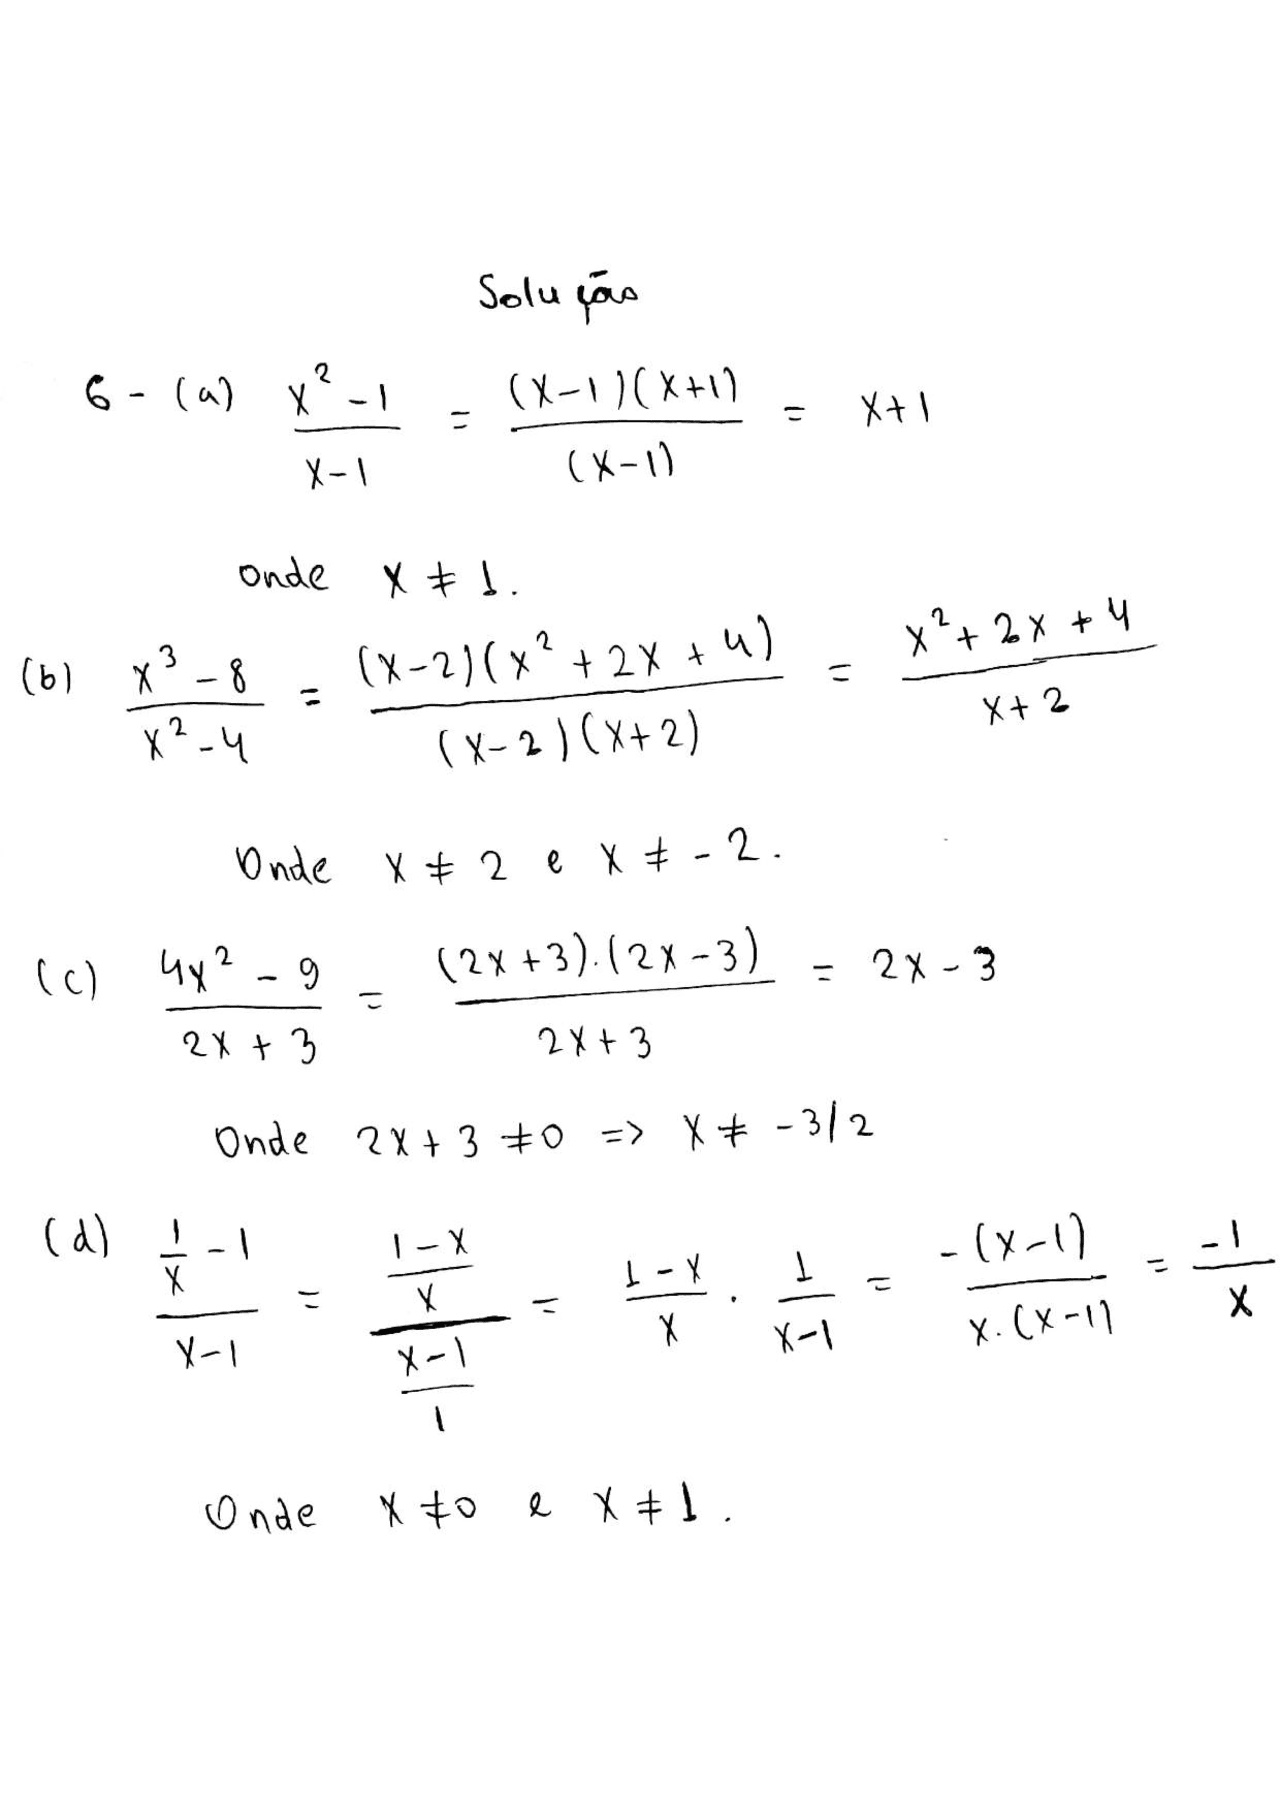 Solução
6 - (a) \frac{x^2 - 1}{x - 1} = \frac{(x-1)(x+1)}{(x-1)} = x+1
onde x ≠ 1.
(b) \frac{x^3 - 8}{x^2 - 4} = \frac{(x-2)(x^2 + 2x + 4)}{(x-2)(x+2)} = \frac{x^2 + 2x + 4}{x+2}
Onde x ≠ 2 e x ≠ -2.
(c) \frac{4x^2 - 9}{2x + 3} = \frac{(2x+3).(2x-3)}{2x+3} = 2x - 3
Onde 2x + 3 ≠ 0 => x ≠ -3/2
(d) \frac{\frac{1}{x} - 1}{x-1} = \frac{\frac{1-x}{x}}{\frac{x-1}{1}} = \frac{1-x}{x} . \frac{1}{x-1} = \frac{-(x-1)}{x.(x-1)} = \frac{-1}{x}
Onde x ≠ 0 e x ≠ 1.